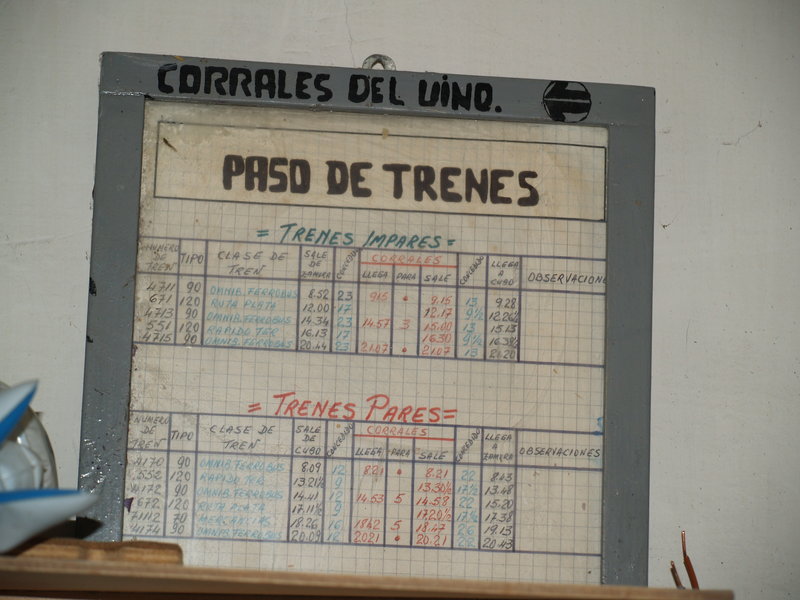 CORRALES DEL VINO.
PASO DE TRENES
= TRENES IMPARES =
NUMERO DE TREN TIPO CLASE DE TREN SALE DE ZAMORA CONCEDIDO CORRALES LLEGA PARA SALE CONCEDIDO LLEGA A CUBO OBSERVACIONE
4711 90 OMNIB. FERROBUS 8.52 23 9.15 • 9.15 13 9.28
671 120 RUTA PLATA 12.00 17 12.17 9½ 12.26½
4713 90 OMNIB. FERROBUS 14.34 23 14.57 3 15.00 13 15.13
551 120 RAPIDO TER 16.13 17 16.30 9½ 16.39½
4715 90 OMNIB. FERROBUS 20.44 23 21.07 • 21.07 13 21.20
= TRENES PARES =
NUMERO DE TREN TIPO CLASE DE TREN SALE DE CUBO CONCEDIDO CORRALES LLEGA PARA SALE CONCEDIDO LLEGA A ZAMORA OBSERVACIONES
4170 90 OMNIB. FERROBUS 8.09 12 8.21 • 8.21 22 8.43
552 120 RAPIDO TER 13.21½ 9 13.30½ 17½ 13.48
4172 90 OMNIB. FERROBUS 14.41 12 14.53 5 14.58 22 15.20
672 120 RUTA PLATA 17.11½ 9 17.20½ 17½ 17.38
70 MERCANCIAS 18.26 16 18.42 5 18.47 26 19.13
4174 90 OMNIB. FERROBUS 20.09 12 20.21 • 20.21 22 20.43